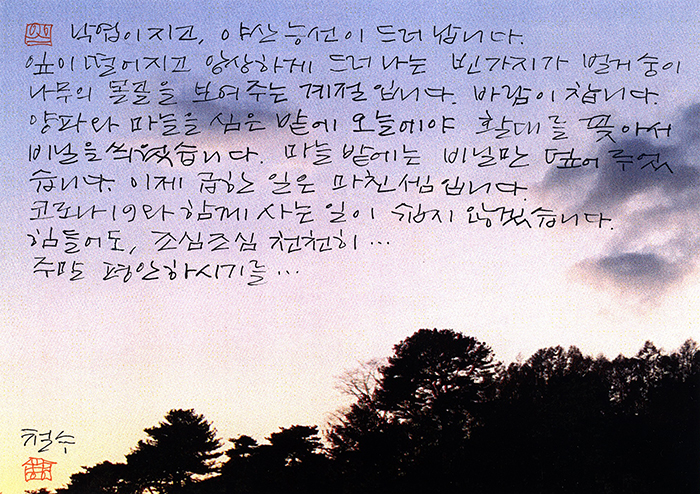 낙엽이 지고, 야산 능선이 드러납니다.
잎이 떨어지고 앙상하게 드러나는 빈 가지가 벌거숭이
나무의 몰골을 보여주는 계절입니다. 바람이 찹니다.
양파와 마늘을 심은 밭에 오늘에야 활대를 꽂아서
비닐을 씌웠습니다. 마늘 밭에는 비닐만 덮어 주었
습니다. 이제 급한 일은 마친 셈입니다.
코로나19와 함께 사는 일이 쉽지 않겠습니다.
힘들어도, 조심조심 천천히…
주말 평안하시기를…
철수